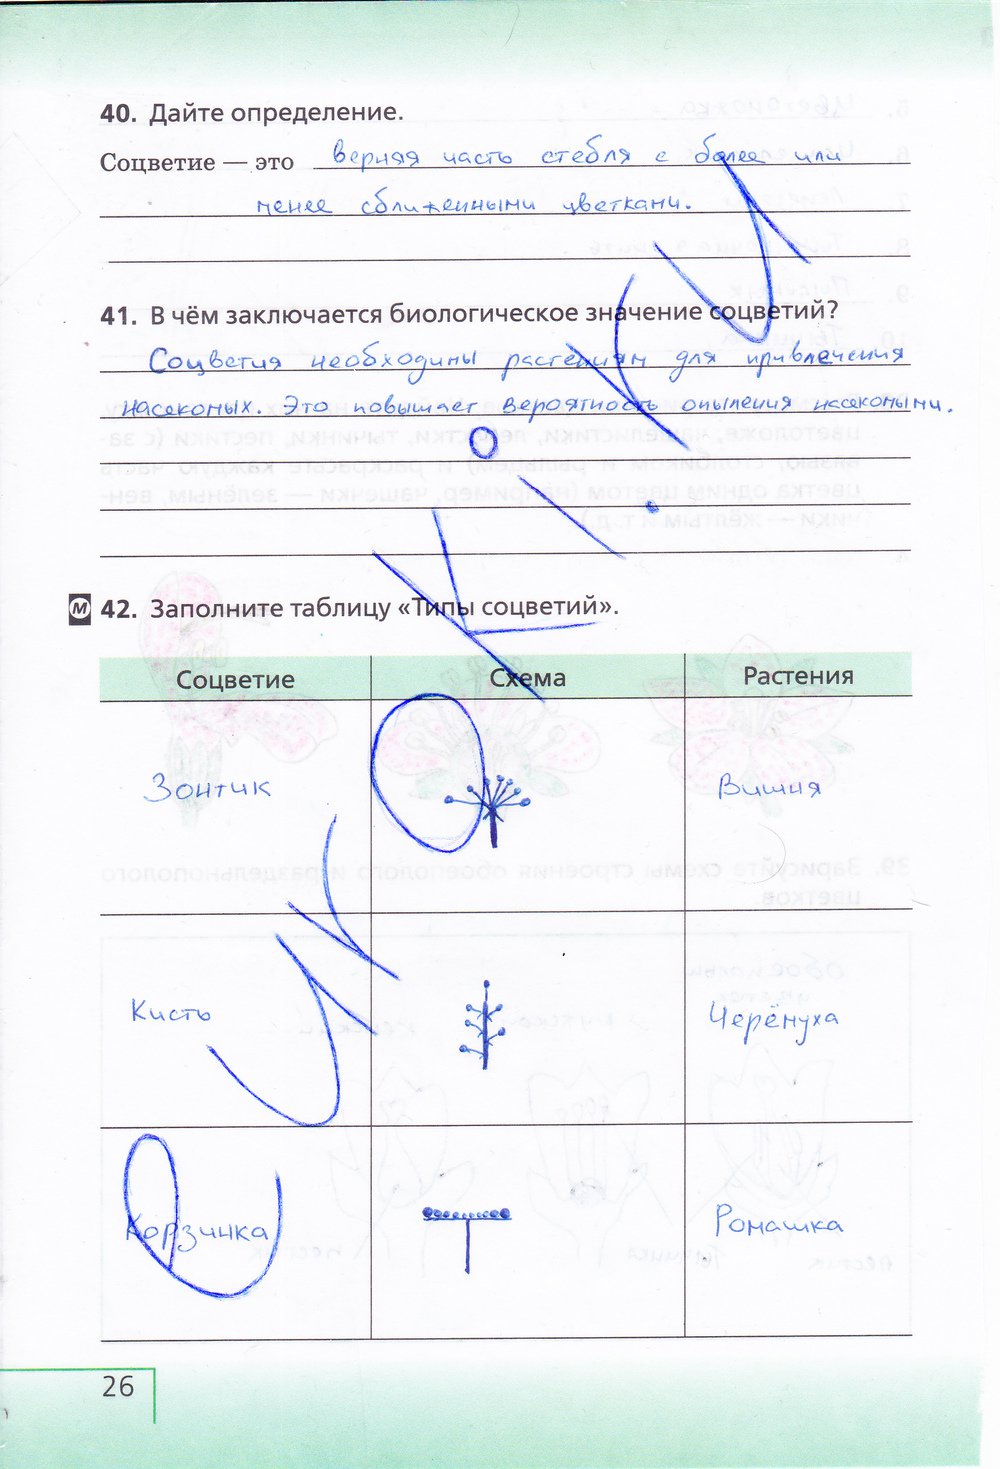 40. Дайте определение.
Соцветие — это верняя часть стебля с более или
менее сближенными цветками.
41. В чём заключается биологическое значение соцветий?
Соцветия необходимы растениям для привлечения
насекомых. Это повышает вероятность опыления насекомыми.
М 42. Заполните таблицу «Типы соцветий».
Соцветие Схема Растения
Зонтик Вишня
Кисть Черёмуха
Корзинка Ромашка
26